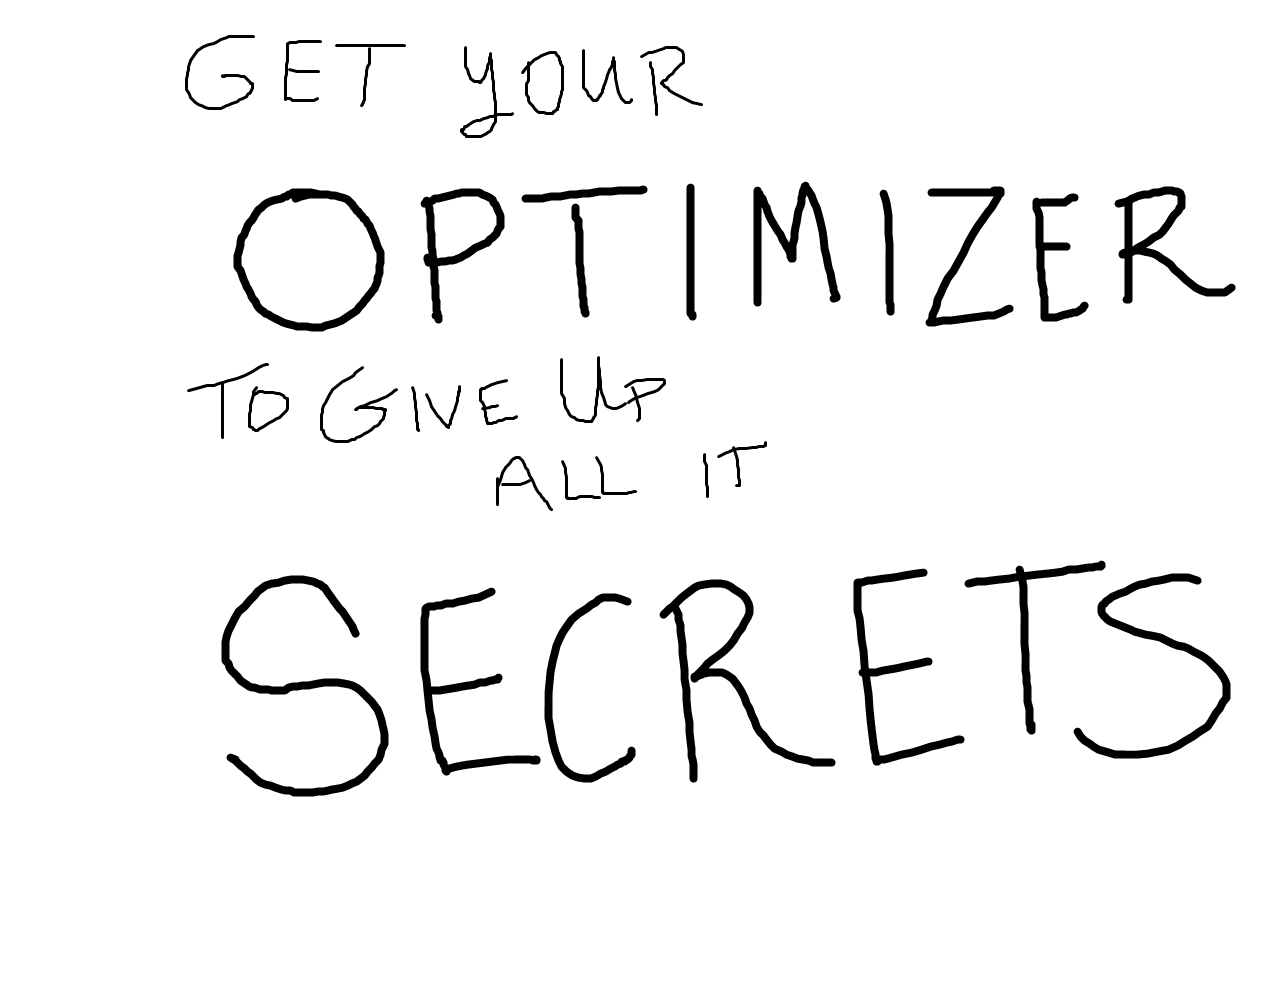 GET YOUR
OPTIMIZER
TO GIVE UP
ALL IT
SECRETS